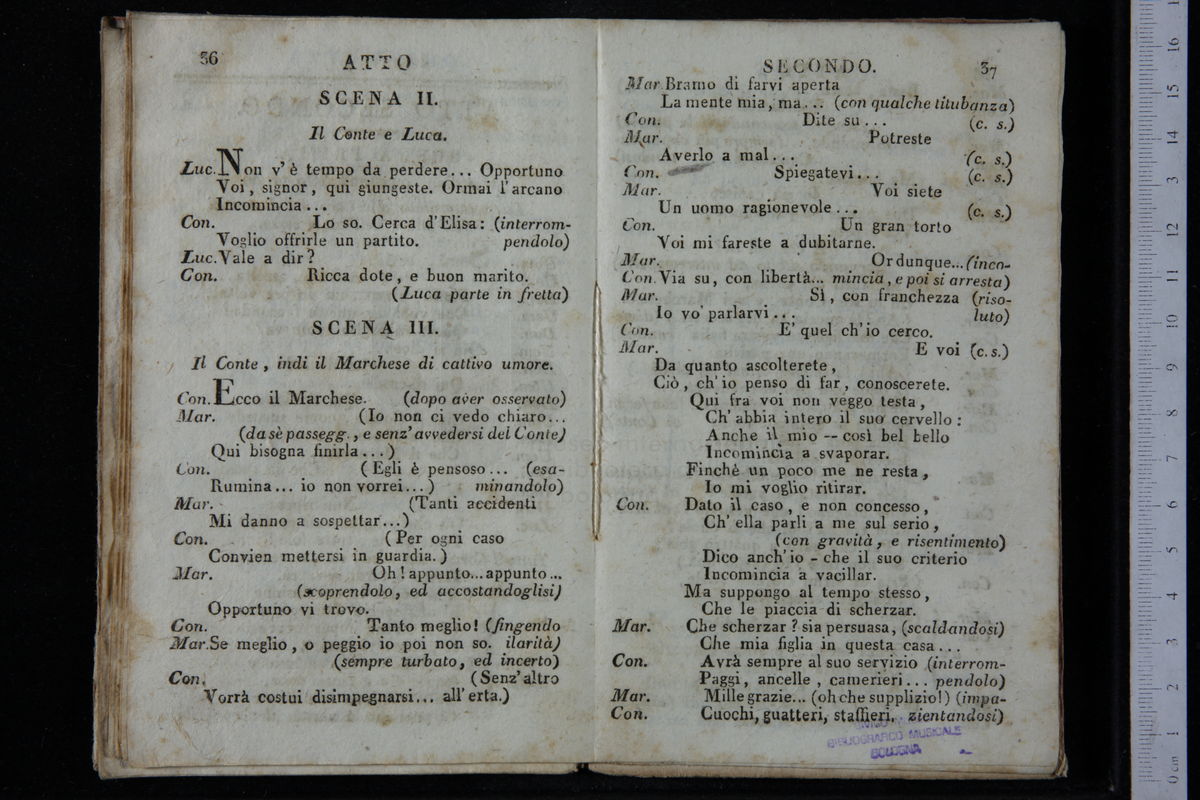 36
ATTO
SCENA II.
Il Conte e Luca.
Luc. Non v'è tempo da perdere... Opportuno
Voi, signor, qui giungeste. Ormai l'arcano
Incomincia...
Con. Lo so. Cerca d'Elisa: (interrom-
Voglio offrirle un partito. pendolo)
Luc. Vale a dir?
Con. Ricca dote, e buon marito.
(Luca parte in fretta)
SCENA III.
Il Conte, indi il Marchese di cattivo umore.
Con. Ecco il Marchese. (dopo aver osservato)
Mar. (Io non ci vedo chiaro...
(da sè passegg., e senz'avvedersi del Conte)
Qui bisogna finirla...)
Con. (Egli è pensoso... (esa-
Rumina... io non vorrei...) minandolo)
Mar. (Tanti accidenti
Mi danno a sospettar...)
Con. (Per ogni caso
Convien mettersi in guardia.)
Mar. Oh! appunto... appunto...
(scoprendolo, ed accostandoglisi)
Opportuno vi trovo.
Con. Tanto meglio! (fingendo
Mar. Se meglio, o peggio io poi non so. ilarità)
(sempre turbato, ed incerto)
Con. (Senz'altro
Vorrà costui disimpegnarsi... all'erta.)
SECONDO.
37
Mar. Bramo di farvi aperta
La mente mia, ma... (con qualche titubanza)
Con. Dite su... (c. s.)
Mar. Potreste
Averlo a mal... (c. s.)
Con. Spiegatevi... (c. s.)
Mar. Voi siete
Un uomo ragionevole... (c. s.)
Con. Un gran torto
Voi mi fareste a dubitarne.
Mar. Or dunque... (inco-
Con. Via su, con libertà... mincia, e poi si arresta)
Mar. Sì, con franchezza (riso-
Io vo' parlarvi... luto)
Con. E' quel ch'io cerco.
Mar. E voi (c. s.)
Da quanto ascolterete,
Ciò, ch'io penso di far, conoscerete.
Qui fra voi non veggo testa,
Ch'abbia intero il suo cervello:
Anche il mio -- così bel bello
Incomincia a svaporar.
Finchè un poco me ne resta,
Io mi voglio ritirar.
Con. Dato il caso, e non concesso,
Ch'ella parli a me sul serio,
(con gravità, e risentimento)
Dico anch'io - che il suo criterio
Incomincia a vacillar.
Ma suppongo al tempo stesso,
Che le piaccia di scherzar.
Mar. Che scherzar? sia persuasa, (scaldandosi)
Che mia figlia in questa casa...
Con. Avrà sempre al suo servizio (interrom-
Paggi, ancelle, camerieri... pendolo)
Mar. Mille grazie... (oh che supplizio!) (impa-
Con. Cuochi, guatteri, staffieri, zientandosi)
BIBLIOGRAFICO MUSICALE
BOLOGNA
0 cm 1 2 3 4 5 6 7 8 9 10 11 12 13 14 15 16